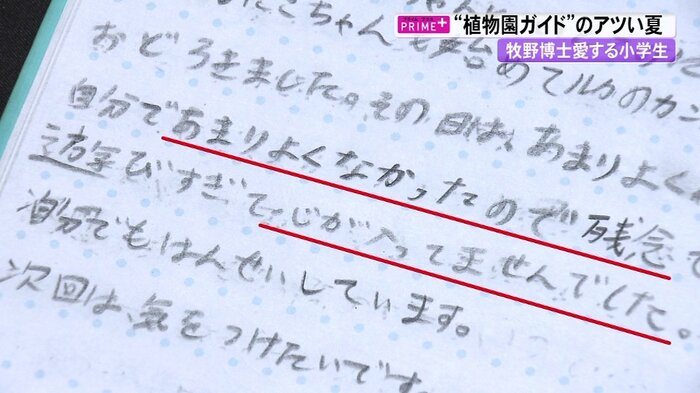 プライムプラス
PRIME+
“植物園ガイド”のアツい夏
牧野博士愛する小学生
おどろきました。その日は、あまりよく
自分であまりよくなかったので残念で
遊びすぎて、じが入ってませんでした。
自分でもはんせいしています。
次回は、気をつけたいです